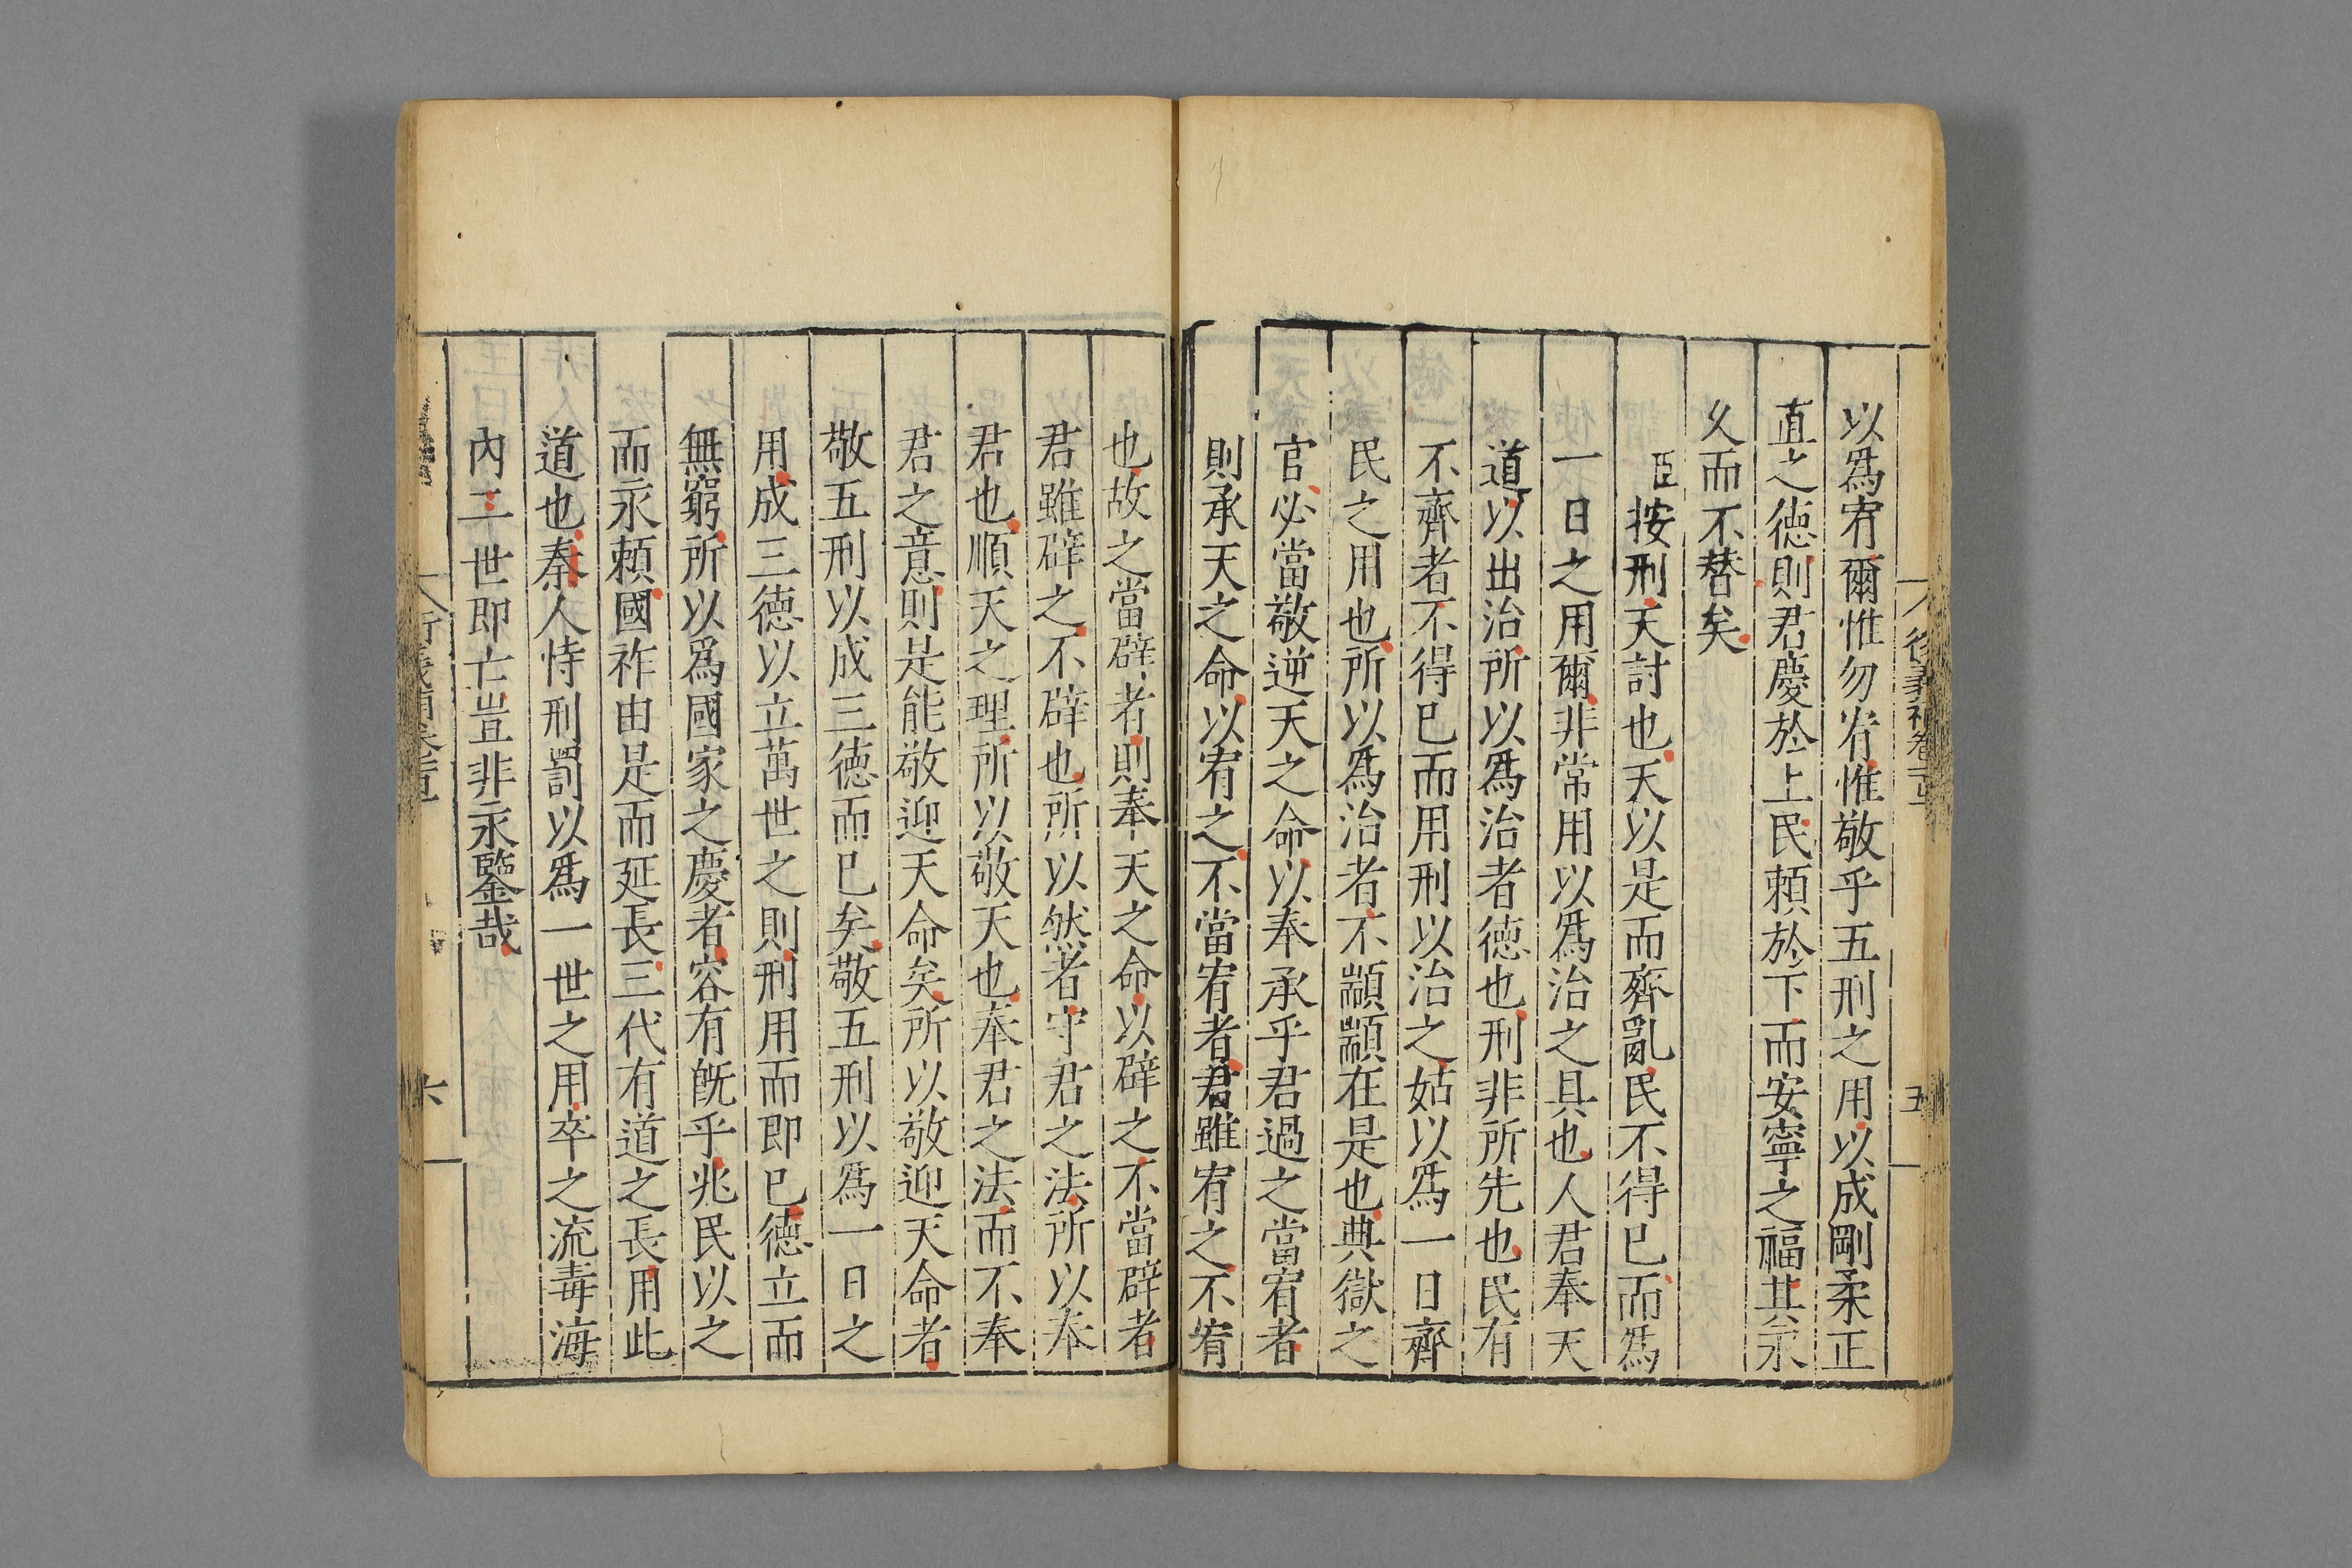 以爲宥爾惟勿宥惟敬乎五刑之用以成剛柔正
直之德則君慶於上民賴於下而安寧之福其永
久而不替矣
臣按刑天討也天以是而齊亂民不得已而爲
一日之用爾非常用以爲治之具也人君奉天
道以出治所以爲治者德也刑非所先也民有
不齊者不得已而用刑以治之姑以爲一日齊
民之用也所以爲治者不顓顓在是也典獄之
官必當敬逆天之命以奉承乎君過之當宥者
則承天之命以宥之不當宥者君雖宥之不宥
也故之當辟者則奉天之命以辟之不當辟者
君雖辟之不辟也所以然者守君之法所以奉
君也順天之理所以敬天也奉君之法而不奉
君之意則是能敬迎天命矣所以敬迎天命者
敬五刑以成三德而已矣敬五刑以爲一日之
用成三德以立萬世之則刑用而即已德立而
無窮所以爲國家之慶者容有旣乎兆民以之
而永賴國祚由是而延長三代有道之長用此
道也秦人恃刑罰以爲一世之用卒之流毒海
內二世即亡豈非永鑒哉
五
六